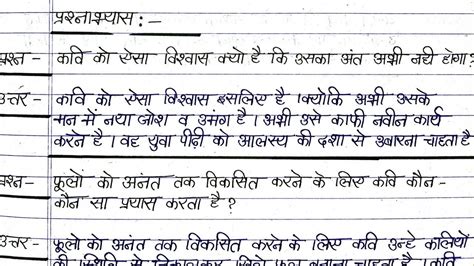 प्रश्नाभ्यास : —
प्रश्न - कवि को ऐसा विश्वास क्यो है कि उसका अंत अभी नही होगा ?
उत्तर - कवि को ऐसा विश्वास इसलिए है । क्योकि अभी उसके
मन में नया जोश व उमंग है । अभी उसे काफी नवीन कार्य
करने है । वह युवा पीढी को आलस्य की दशा से उबारना चाहता है
प्रश्न - फूलों को अनंत तक विकसित करने के लिए कवि कौन -
कौन सा प्रयास करता है ?
उत्तर - फूलो को अनंत तक विकसित करने के लिए कवि उन्हे कलियों
की स्थिति से निकालकर खिले फूल बनाना चाहता है । कवि